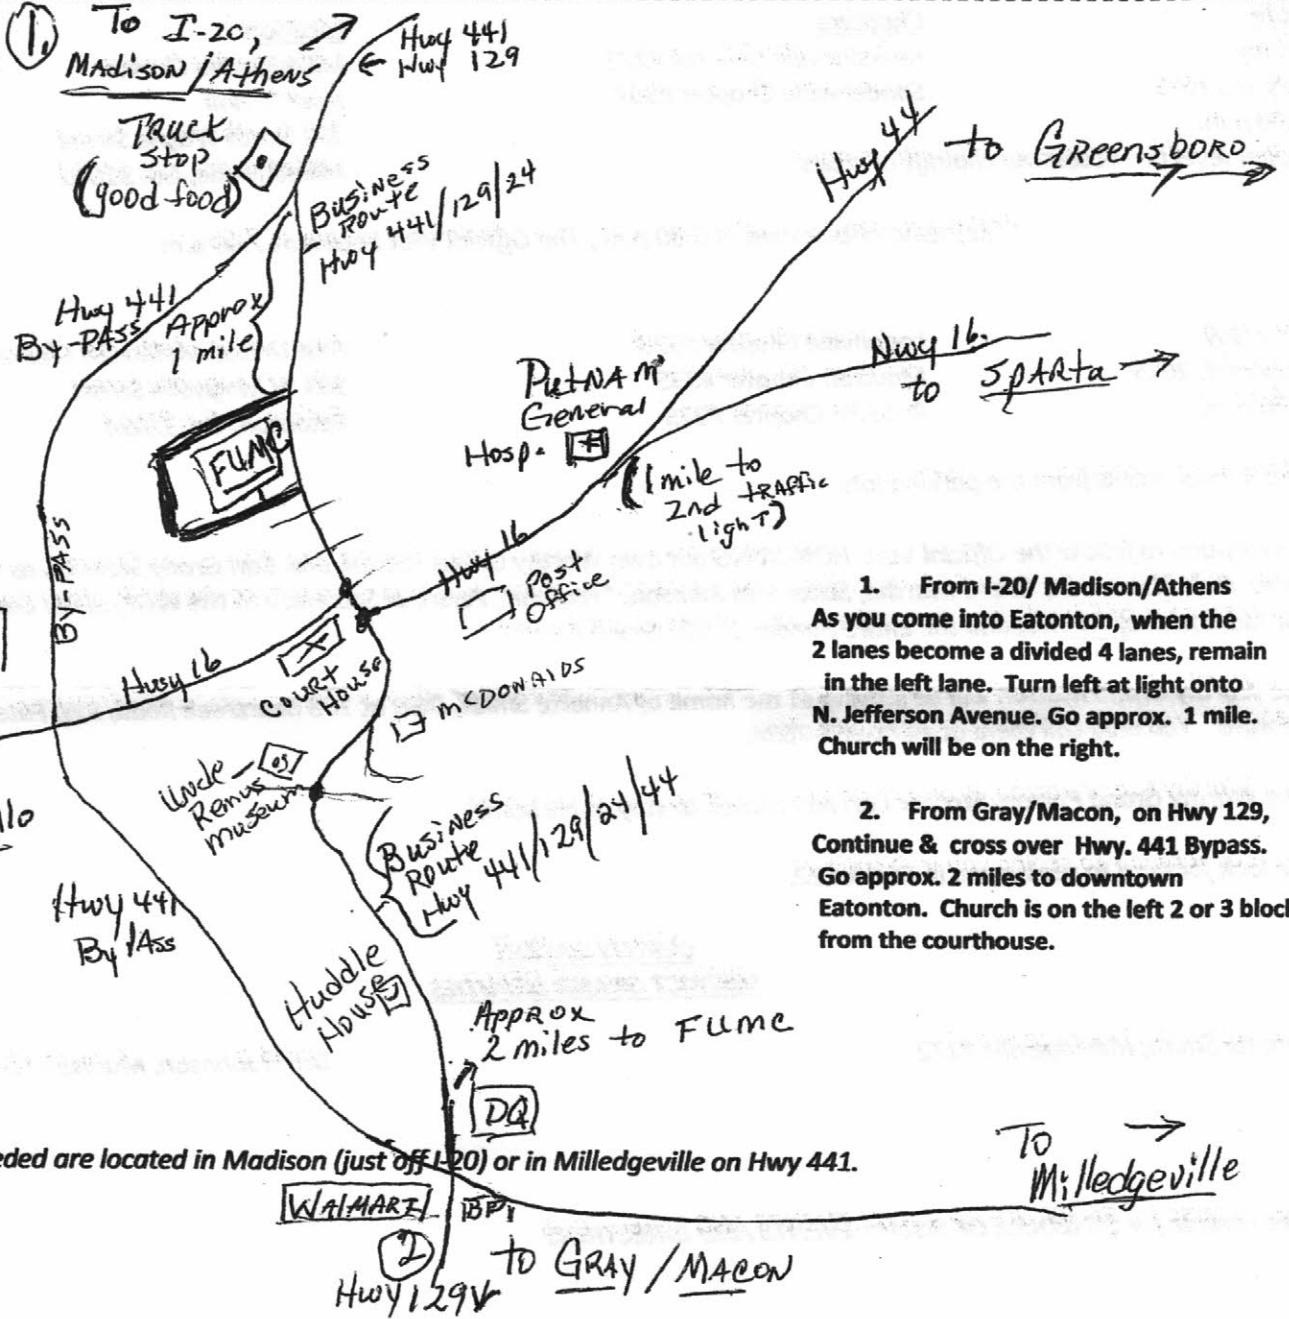 1.
To I-20,
Madison/Athens
Hwy 441
Hwy 129
Truck
Stop
(good food)
Business
Route
Hwy 441/129/24
Hwy 44
to Greensboro
Hwy 441
By-Pass
Approx
1 mile
Hwy 16
to Sparta
Putnam
General
Hosp.
FUMC
(1 mile to
2nd traffic
light)
By-Pass
Hwy 16
Post
Office
Hwy 16
Court
House
McDonalds
Uncle
Remus
Museum
Business
Route
Hwy 441/129/24/44
Hwy 441
By Pass
Huddle
House
Approx
2 miles to FUMC
DQ
1. From I-20/ Madison/Athens
As you come into Eatonton, when the
2 lanes become a divided 4 lanes, remain
in the left lane. Turn left at light onto
N. Jefferson Avenue. Go approx. 1 mile.
Church will be on the right.
2. From Gray/Macon, on Hwy 129,
Continue & cross over Hwy. 441 Bypass.
Go approx. 2 miles to downtown
Eatonton. Church is on the left 2 or 3 block
from the courthouse.
eded are located in Madison (just off I-20) or in Milledgeville on Hwy 441.
To
Milledgeville
Walmart
BP
2
Hwy 129
to Gray/Macon